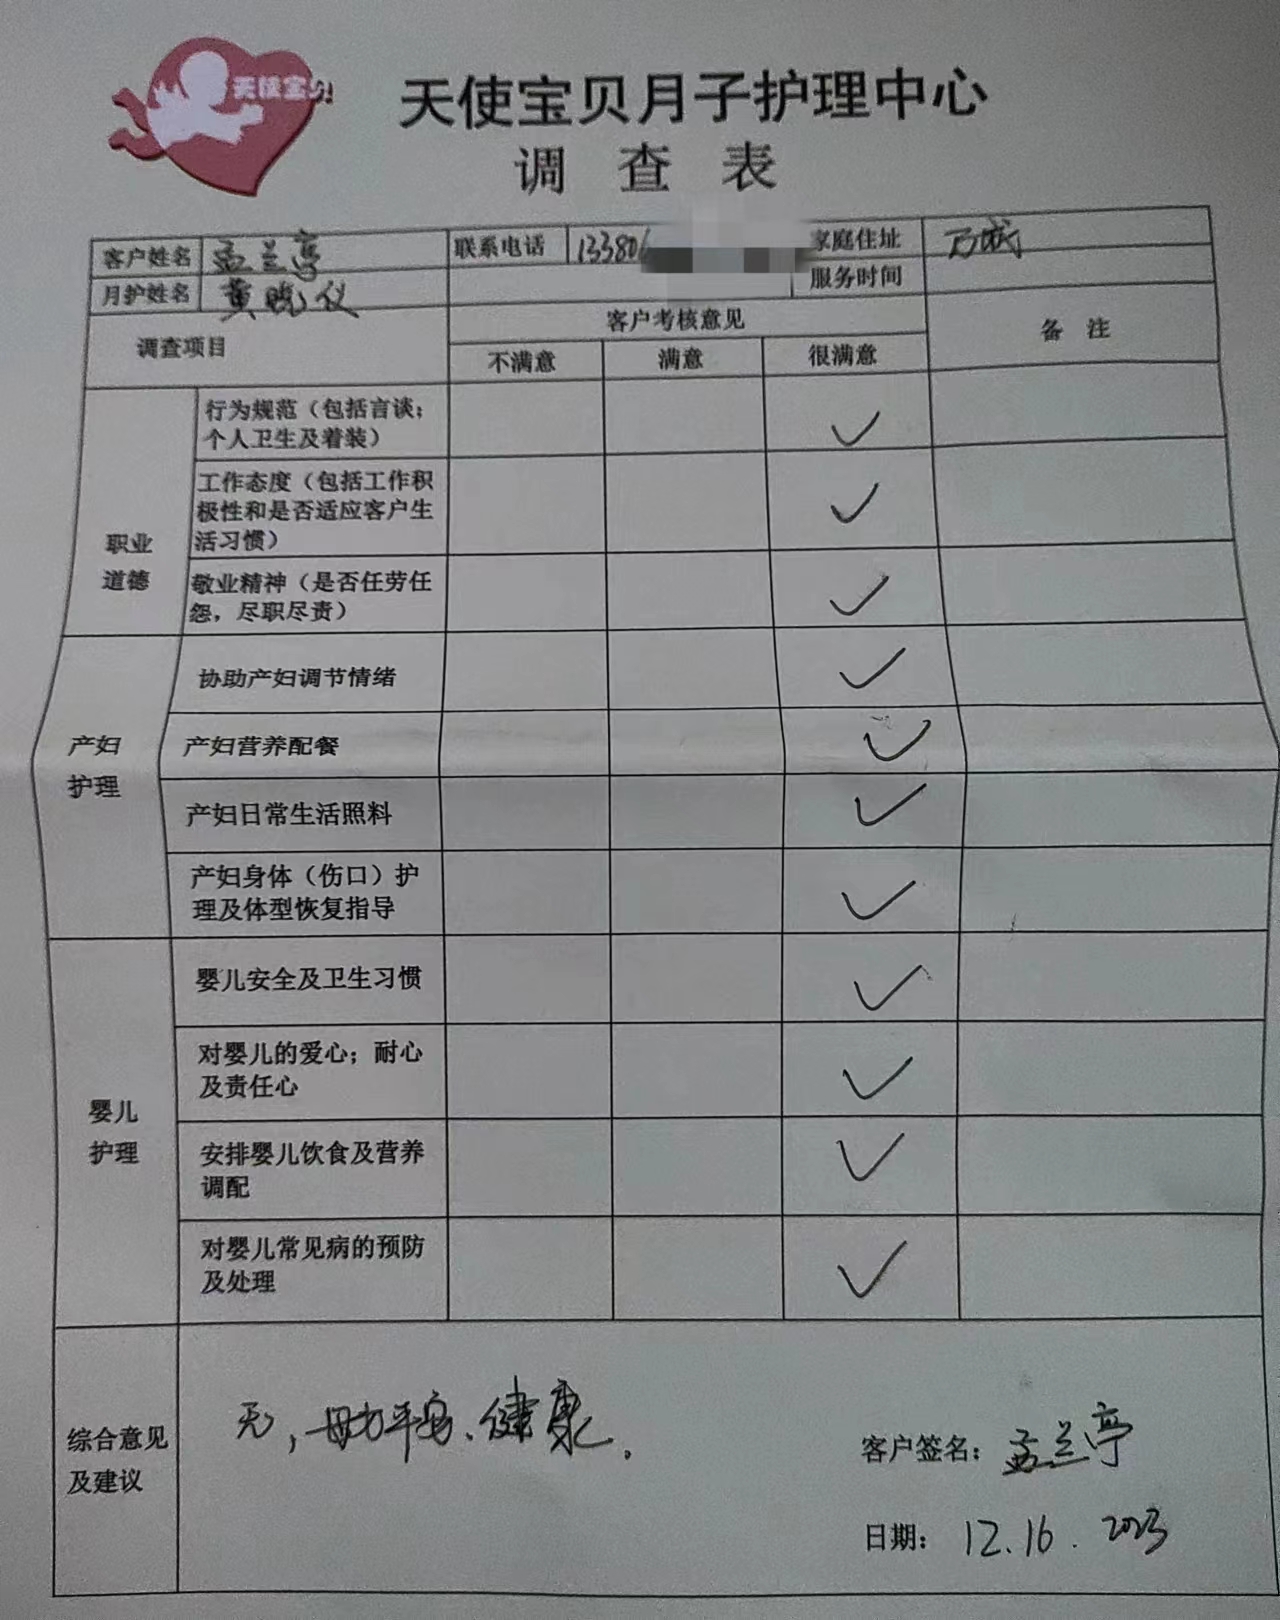 天使宝贝
天使宝贝月子护理中心
调 查 表
客户姓名 孟兰亭 联系电话 133806 家庭住址 万城
月护姓名 黄晓仪 服务时间
调查项目 客户考核意见 备 注
不满意 满意 很满意
职业
道德
行为规范（包括言谈；
个人卫生及着装） ✓
工作态度（包括工作积
极性和是否适应客户生
活习惯） ✓
敬业精神（是否任劳任
怨，尽职尽责） ✓
产妇
护理
协助产妇调节情绪 ✓
产妇营养配餐 ✓
产妇日常生活照料 ✓
产妇身体（伤口）护
理及体型恢复指导 ✓
婴儿
护理
婴儿安全及卫生习惯 ✓
对婴儿的爱心；耐心
及责任心 ✓
安排婴儿饮食及营养
调配 ✓
对婴儿常见病的预防
及处理 ✓
综合意见
及建议
无，平安、健康.
客户签名：孟兰亭
日期：12.16.2023